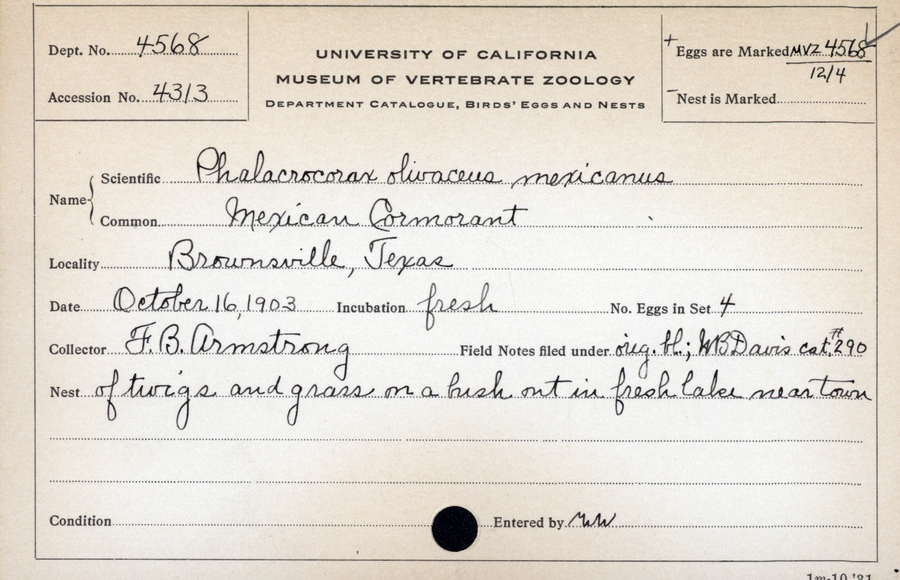 Dept. No. 4568
Accession No. 4313
UNIVERSITY OF CALIFORNIA
MUSEUM OF VERTEBRATE ZOOLOGY
DEPARTMENT CATALOGUE, BIRDS' EGGS AND NESTS
+ Eggs are Marked MVZ 4568
12/4
- Nest is Marked
Name { Scientific Phalacrocorax olivaceus mexicanus
Common Mexican Cormorant
Locality Brownsville, Texas
Date October 16, 1903 Incubation fresh No. Eggs in Set 4
Collector F. B. Armstrong Field Notes filed under orig. bl.; WBDavis cat.#290
Nest of twigs and grass on a bush out in fresh lake near town
Condition Entered by
1m-10,'31